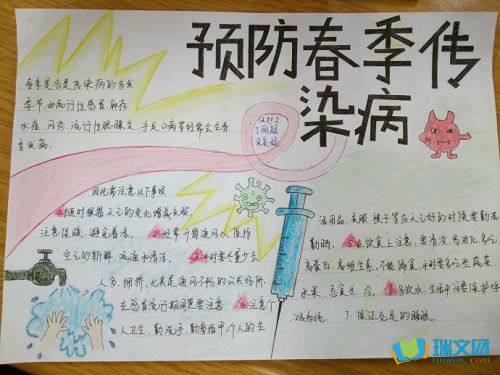 预防春季传
染病
春季是各类传染病的多发
季节,如流行性感冒 麻疹
水痘 风疹、流行性腮腺炎、手足口病等经常会在春
季发病.
因此需注意以下事项
1.随时根据天气的变化增减衣服,
注意保暖,避免着凉. 2.经常开窗通风以保持
空气的新鲜 流通和清洁. 3.平时要尽量少去
人多 拥挤,尤其是通风不畅的公共场所,
在感冒流行期间更要注意 4.注意个
人卫生,勤洗手,勤剪指甲,个人的生
活用品,衣服 被子等在天气好的时候要勤洗
勤晒, 5.在饮食上注意,要清淡、易消化、多吃
高蛋白、高维生素,不能偏食,平时要多吃些蔬菜、
水果,忌食生冷, 6.多饮水,生活中注意保护呼
吸系统, 7.保证充足的睡眠.
瑞文网